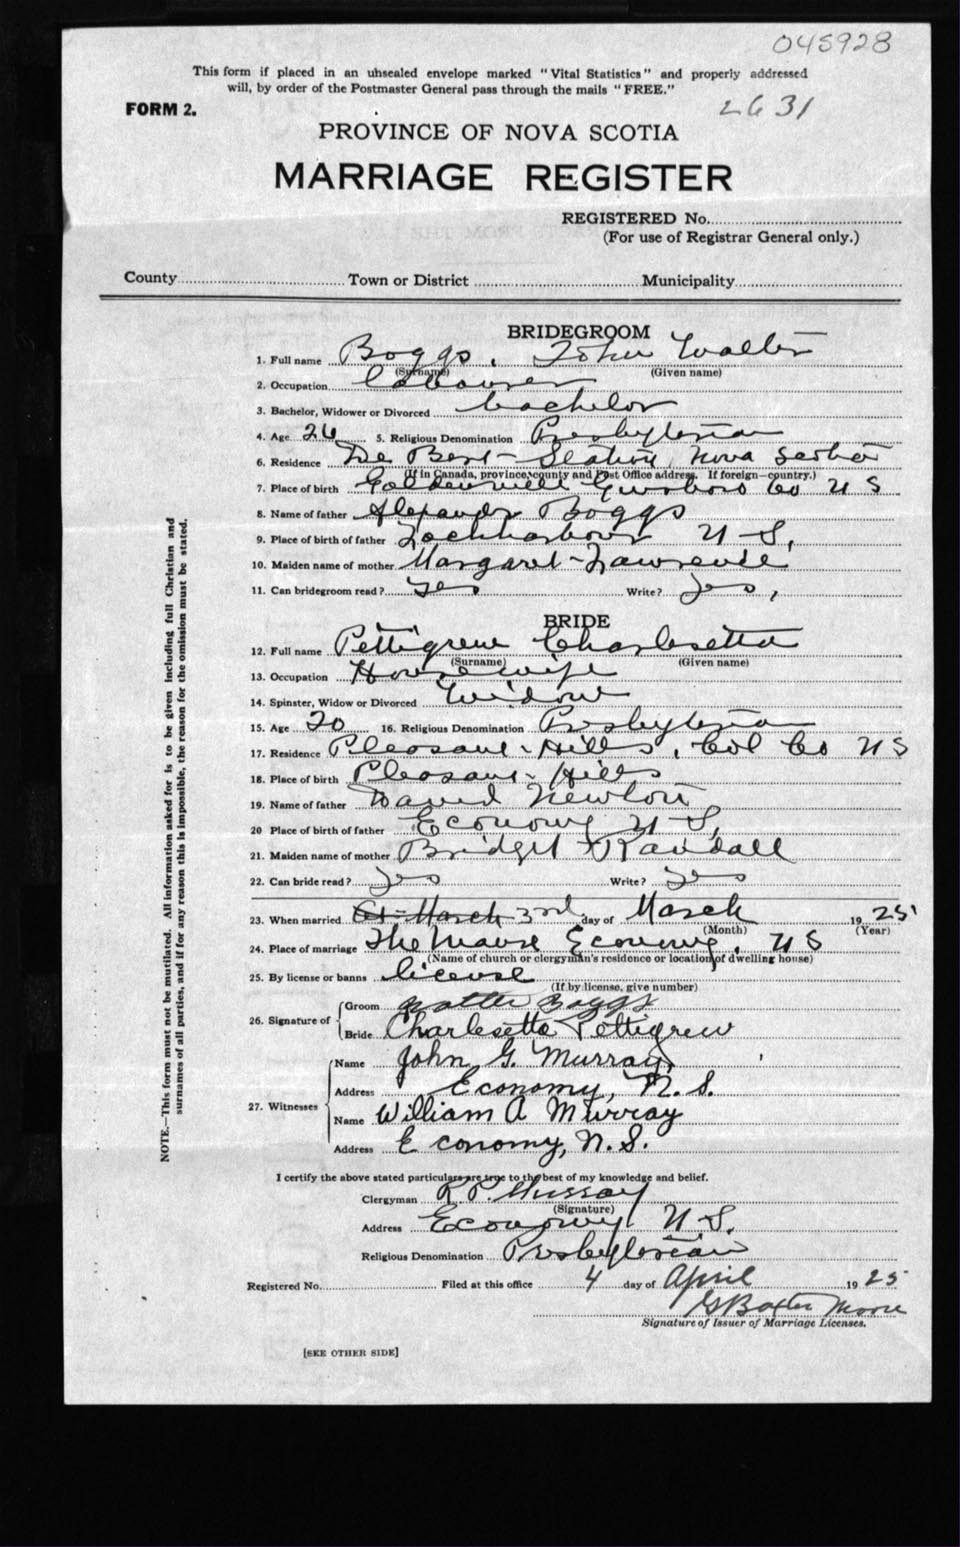 045928
This form if placed in an unsealed envelope marked "Vital Statistics" and properly addressed
will, by order of the Postmaster General pass through the mails "FREE."
FORM 2.
2631
PROVINCE OF NOVA SCOTIA
MARRIAGE REGISTER
REGISTERED No.
(For use of Registrar General only.)
County Town or District Municipality
BRIDEGROOM
1. Full name Boggs, John Walter
(Surname) (Given name)
2. Occupation labourer
3. Bachelor, Widower or Divorced bachelor
4. Age 26 5. Religious Denomination Presbyterian
6. Residence De Bert Station, Nova Scotia
(If in Canada, province, county and Post Office address. If foreign—country.)
7. Place of birth Goldenville Guysboro Co N S
8. Name of father Alexander Boggs
9. Place of birth of father Lochharbour N S,
10. Maiden name of mother Margaret Lawrence
11. Can bridegroom read? Yes Write? Yes,
BRIDE
12. Full name Pettigrew Charlesetta
(Surname) (Given name)
13. Occupation Housewife
14. Spinster, Widow or Divorced Widow
15. Age 20 16. Religious Denomination Presbyterian
17. Residence Pleasant Hills, Col Co N S
18. Place of birth Pleasant Hills
19. Name of father David Newton
20 Place of birth of father Economy N S,
21. Maiden name of mother Bridget Randall
22. Can bride read? Yes Write? Yes
23. When married 3rd day of March 1925
(Month) (Year)
24. Place of marriage The Manse Economy, N S
(Name of church or clergyman's residence or location of dwelling house)
25. By license or banns license
(If by license, give number)
26. Signature of Groom Walter Boggs
Bride Charlesetta Pettigrew
27. Witnesses Name John G. Murray
Address Economy, N. S.
Name William A Murray
Address Economy, N. S.
I certify the above stated particulars are true to the best of my knowledge and belief.
Clergyman R P. Murray
(Signature)
Address Economy N S.
Religious Denomination Presbyterian
Registered No. Filed at this office 4 day of April 1925
G Baxter Moore
Signature of Issuer of Marriage Licenses.
[SEE OTHER SIDE]
NOTE.—This form must not be mutilated. All information asked for is to be given including full Christian and
surnames of all parties, and if for any reason this is impossible, the reason for the omission must be stated.